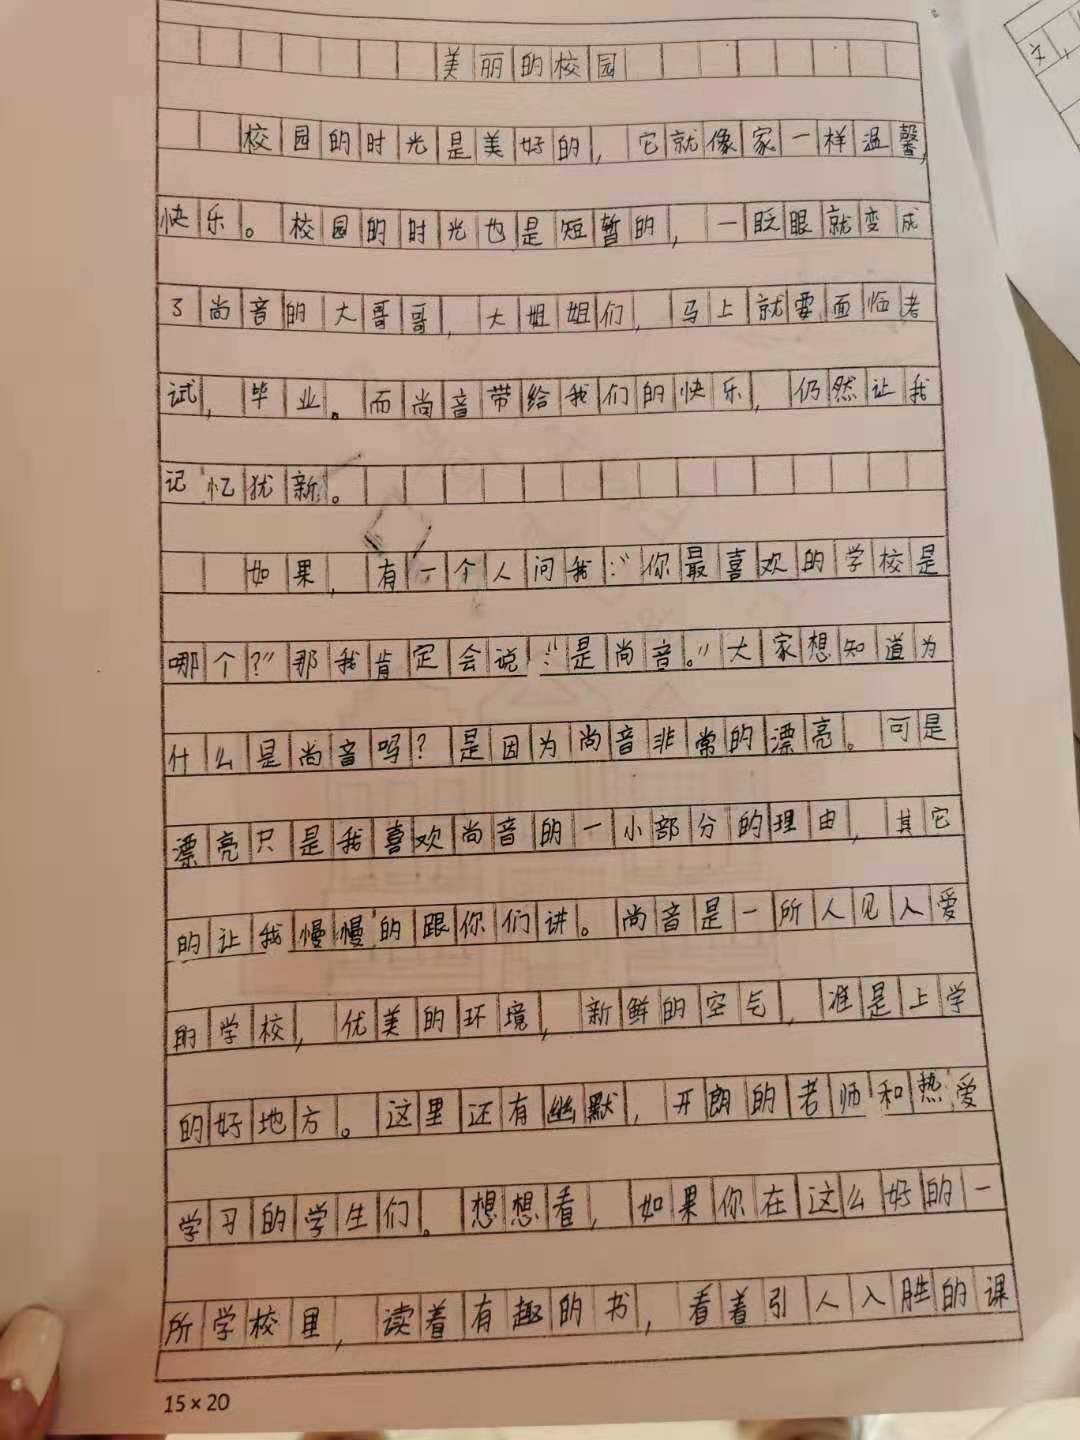 美丽的校园
校园的时光是美好的，它就像家一样温馨，
快乐。校园的时光也是短暂的，一眨眼就变成
了尚音的大哥哥，大姐姐们，马上就要面临考
试，毕业。而尚音带给我们的快乐，仍然让我
记忆犹新。
如果，有一个人问我：“你最喜欢的学校是
哪个？”那我肯定会说：“是尚音。”大家想知道为
什么是尚音吗？是因为尚音非常的漂亮。可是
漂亮只是我喜欢尚音的一小部分的理由，其它
的让我慢慢的跟你们讲。尚音是一所人见人爱
的学校，优美的环境，新鲜的空气，准是上学
的好地方。这里还有幽默，开朗的老师和热爱
学习的学生们。想想看，如果你在这么好的一
所学校里，读着有趣的书，看着引人入胜的课
15×20
文，